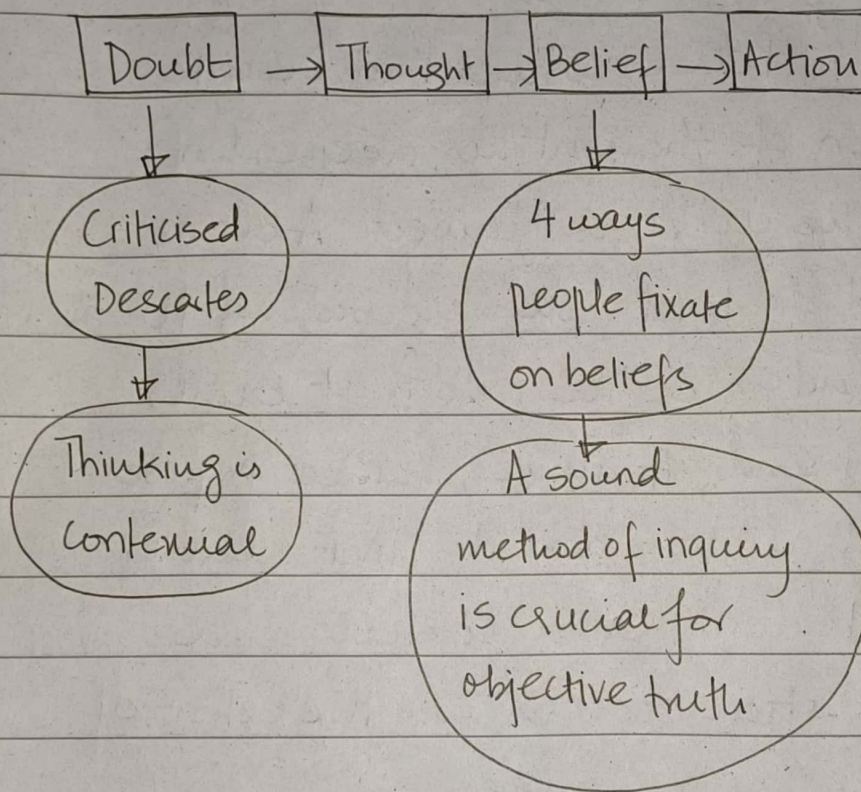 Doubt → Thought → Belief → Action
Criticised
Descartes
Thinking is
4 ways
people fixate
on beliefs
A sound
method of inquiry
is crucial for
objective truth.